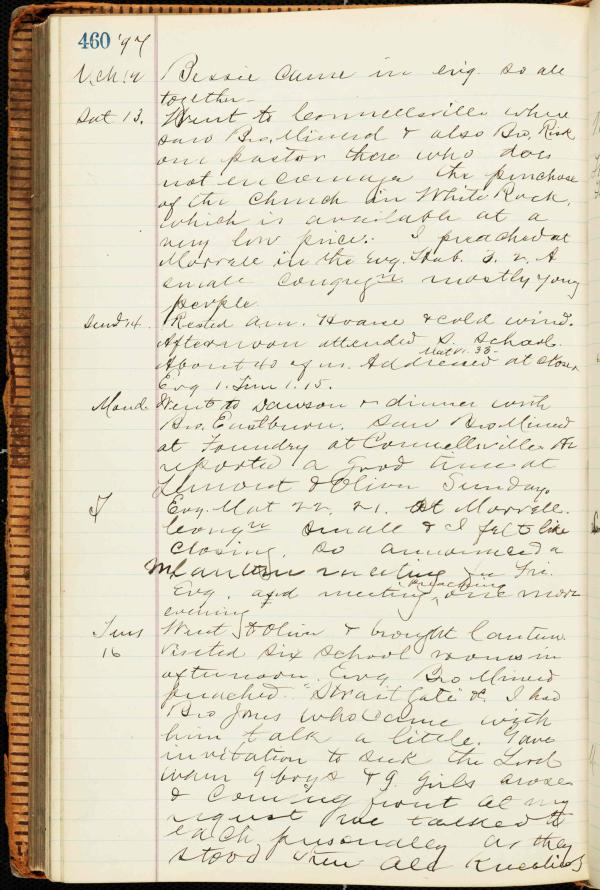 460 '97
Bessie came in evg. so all
together—
Sat 13. Went to Connellsville where
saw Bro. Minerd & also Bro. Risk
our pastor there who does
not encourage the purchase
of the Church in White Rock,
which is available at a
very low price. I preached at
Morrell in the Evg. Hab. 3. 2. A
small congregn. mostly young
people
Sund 14. Rested a.m. Hoarse & cold wind.
Afternoon attended S. School.
About 40 of us. Addressed at close,
Matt 11. 38-
Evg 1. Tim 1. 15.
Mond. Went to Dawson & dinner with
Bro. Eastburn. Saw Bro Minerd
at Foundry at Connellsville. He
reported a good time at
Lemont & Oliver Sunday.
Evg. Mat 22. 21. At Morrell.
Congn small & I felt like
closing, so announced a
Lantern meeting for Fri.
Evg. and meeting, preaching one more
evening
Tues Went to Oliver & brought lantern.
16 Visited six School rooms in
afternoon. Evg Bro Minerd
preached. "Strait Gate" &c. I had
Bro Jones who came with
him talk a little. Gave
invitation to seek the Lord
when 9 boys & 9. girls arose
& coming front at my
request we talked to
each personally as they
stood then all kneeling